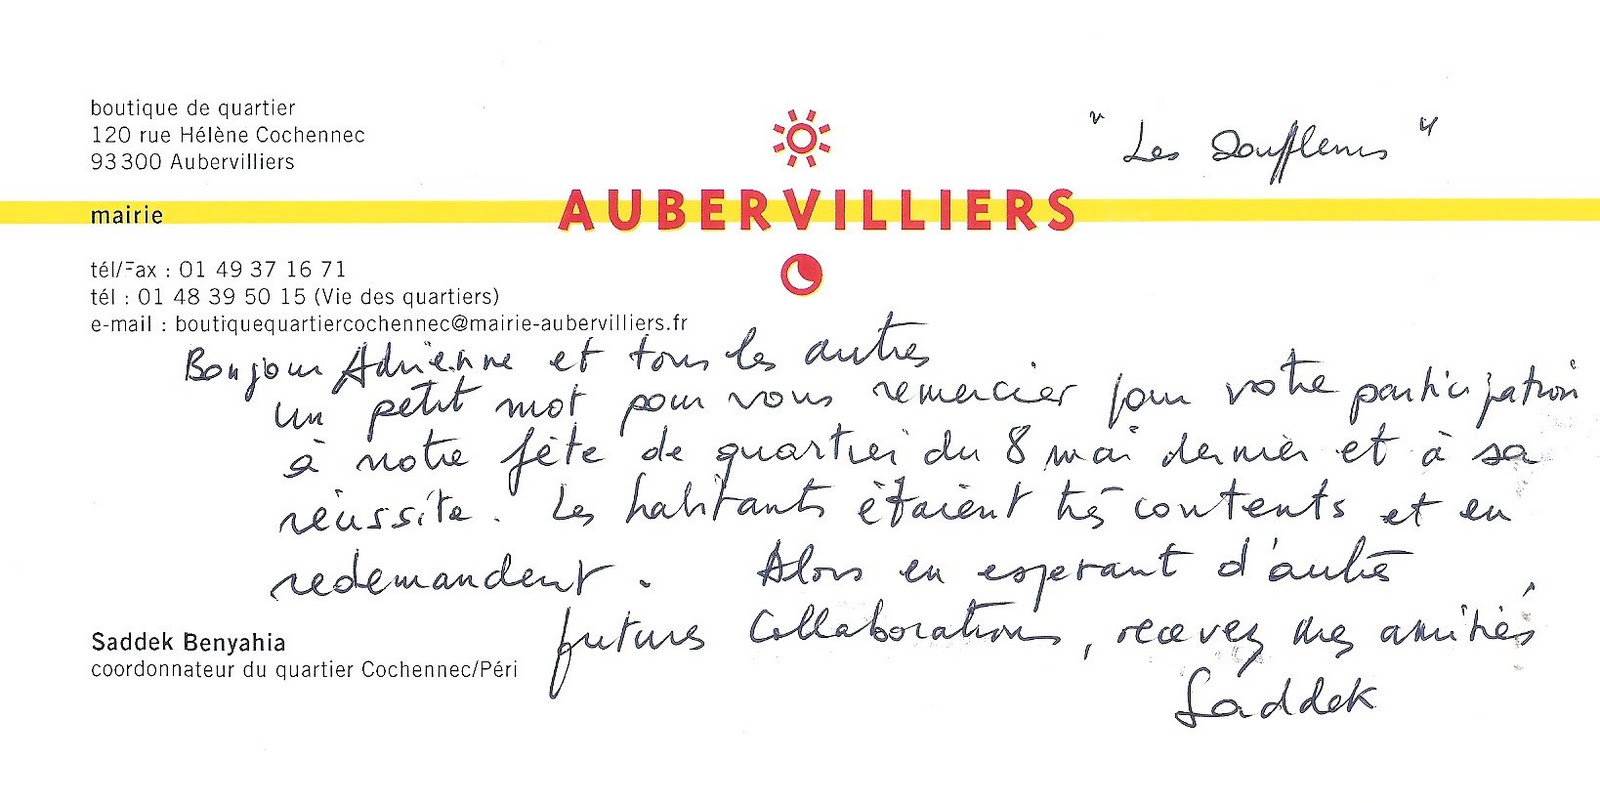 boutique de quartier
120 rue Hélène Cochennec
93300 Aubervilliers
"Les Souffleurs"
mairie
AUBERVILLIERS
tél/Fax : 01 49 37 16 71
tél : 01 48 39 50 15 (Vie des quartiers)
e-mail : boutiquequartiercochennec@mairie-aubervilliers.fr
Bonjour Adrienne et tous les autres
un petit mot pour vous remercier pour votre participation
à notre fête de quartier du 8 mai dernier et à sa
réussite. Les habitants étaient très contents et en
redemandent. Alors en esperant d'autres
futures collaborations, recevez mes amitiés
Saddek
Saddek Benyahia
coordonnateur du quartier Cochennec/Péri